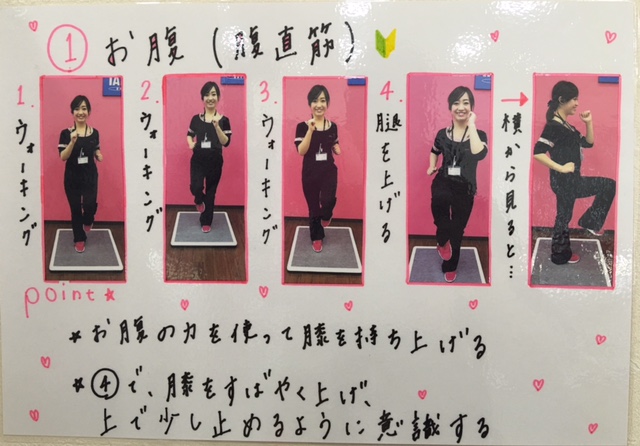 ① お腹(腹直筋)
1. ウォーキング
2. ウォーキング
3. ウォーキング
4. 腿を上げる
→ 横から見ると…
point★
★お腹の力を使って膝を持ち上げる
★④で、膝をすばやく上げ、
上で少し止めるように意識する